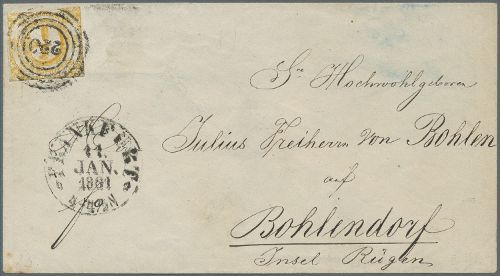 220
Sr Hochwohlgeboren
Julius Freiherrn von Bohlen
auf
Bohlendorf
Insel Rügen
FRANKFURT
11.
JAN.
1861